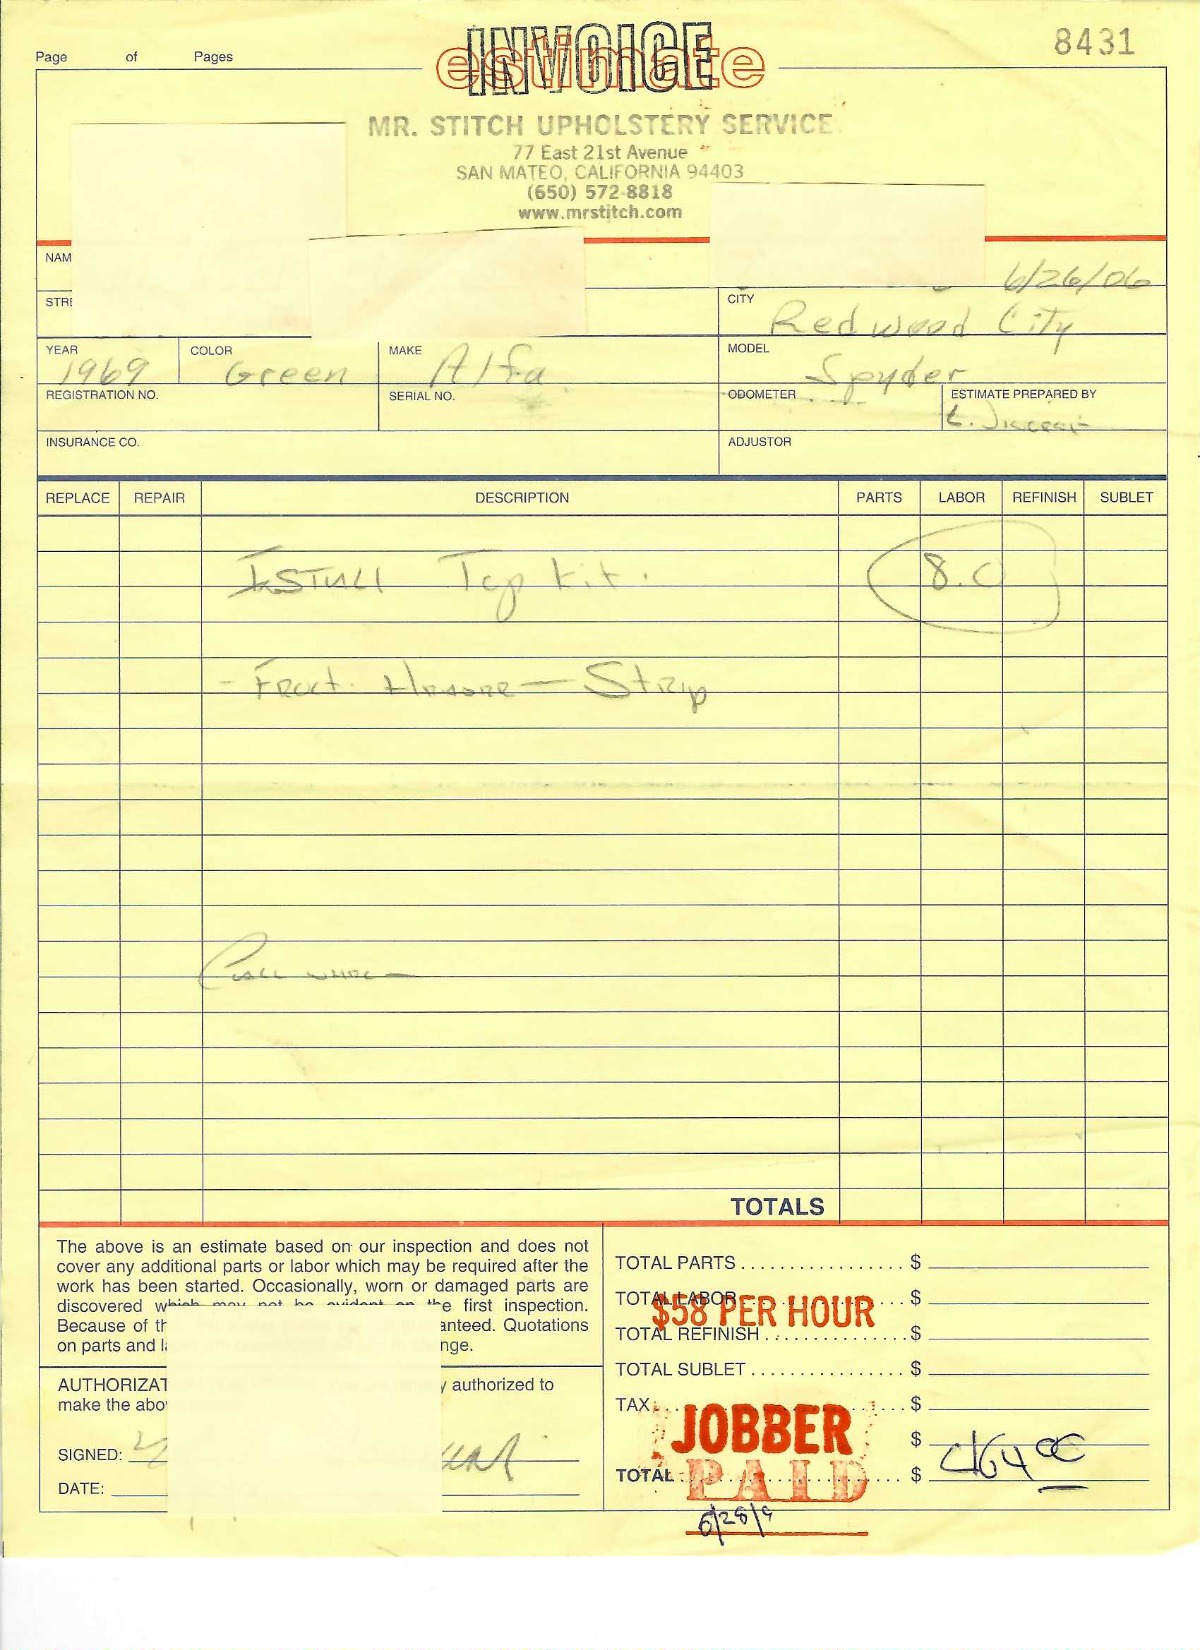 Page of Pages
INVOICE
estimate
8431
MR. STITCH UPHOLSTERY SERVICE
77 East 21st Avenue
SAN MATEO, CALIFORNIA 94403
(650) 572-8818
www.mrstitch.com
NAM
6/26/06
STRE
CITY
Redwood City
YEAR COLOR MAKE MODEL
1969 Green Alfa Spyder
REGISTRATION NO. SERIAL NO. ODOMETER ESTIMATE PREPARED BY
INSURANCE CO. ADJUSTOR
REPLACE REPAIR DESCRIPTION PARTS LABOR REFINISH SUBLET
Top kit. 8.0
Strip
TOTALS
The above is an estimate based on our inspection and does not
cover any additional parts or labor which may be required after the
work has been started. Occasionally, worn or damaged parts are
discovered which may not be evident on the first inspection.
Because of th anteed. Quotations
on parts and la nge.
AUTHORIZAT y authorized to
make the abo
SIGNED:
DATE:
TOTAL PARTS................ $
TOTAL LABOR................ $
$58 PER HOUR
TOTAL REFINISH............. $
TOTAL SUBLET............... $
TAX........................ $
JOBBER
$
TOTAL...................... $ 464 00
PAID